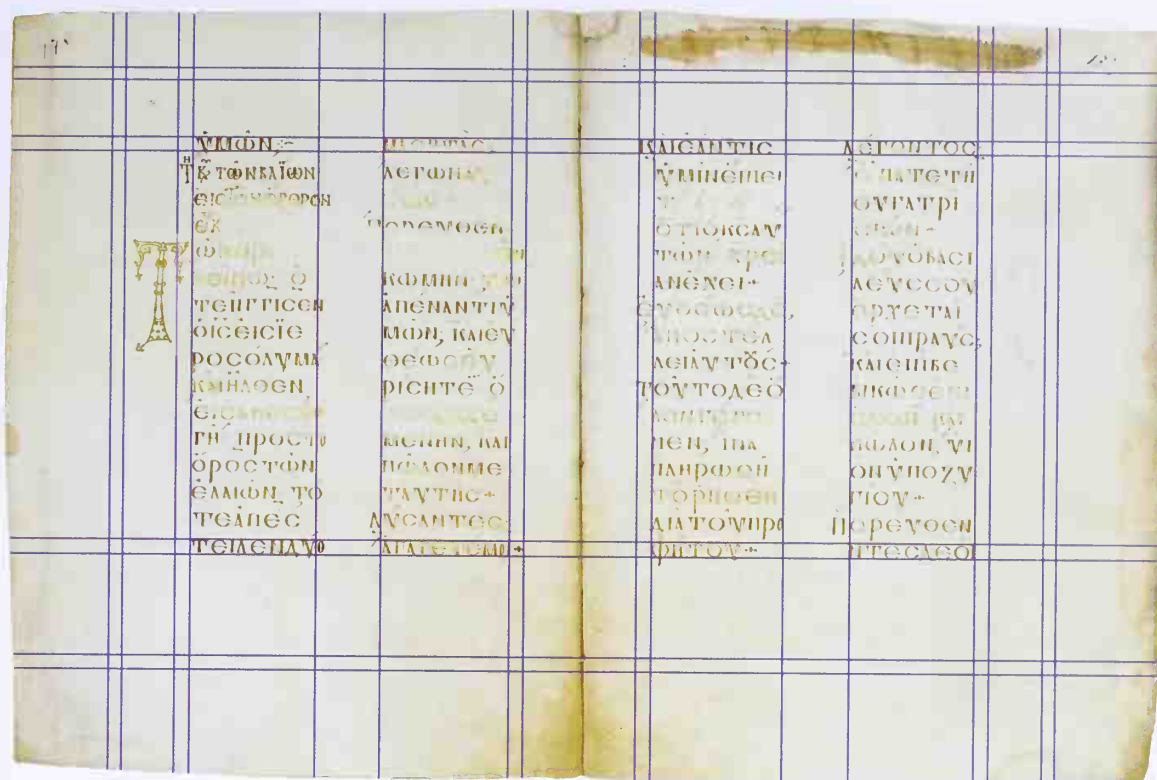 ὙΜΩ͂Ν,
ΤΗ Κ ΤΩ͂Ν ΒΑΪΩΝ
ΕΙΣ ΤΟΝ ΟΡΘΡΟΝ
ΕΚ
Τῼ̂ ΚΑΙΡΩ
ΕΚΕΙΝΩ Ο
ΤΕ ΗΓΓΙΣΕΝ
Ο ΙΣ ΕΙΣ ΙΕ
ΡΟΣΟΛΥΜΑ
ΚΑΙ ΗΛΘΕΝ
ΕΙΣ
ΓΗ ΠΡΟΣ ΤΟ
ΟΡΟΣ ΤΩΝ
ΕΛΑΙΩΝ, ΤΟ
ΤΕ ΑΠΕΣ
ΤΕΙΛΕΝ ΔΥΟ
ΜΑΘΗΤΑΣ,
ΛΕΓΩΝ ΑΥ
ΠΟΡΕΥΘΗ
ΚΩΜΗΝ ΤΗΝ
ΑΠΕΝΑΝΤΙ Υ
ΜΩΝ, ΚΑΙ ΕΥ
ΘΕΩΣ ΕΥ
ΡΙΣΗΤΕ Ο
ΜΕΝΗΝ, ΚΑΙ
ΠΩΛΟΝ ΜΕ
Τ ΑΥΤΗΣ+
ΛΥΣΑΝΤΕΣ
ΑΓΑΓΕΤΕ ΜΟΙ+
ΚΑΙ ΕΑΝ ΤΙΣ
ΥΜΙΝ ΕΙΠΕΙ
ΟΤΙ Ο ΚΣ ΑΥ
ΤΩΝ ΧΡΕΙ
ΑΝ ΕΧΕΙ+
ΕΥΘΕΩΣ ΔΕ,
ΑΠΟΣΤΕΛ
ΛΕΙ ΑΥΤΟΥΣ+
ΤΟΥΤΟ ΔΕ Ο
ΛΟΝ ΓΕΓΟ
ΝΕΝ, ΙΝΑ
ΠΛΗΡΩΘΗ
ΤΟ ΡΗΘΕΝ
ΔΙΑ ΤΟΥ ΠΡΟ
ΦΗΤΟΥ+
ΛΕΓΟΝΤΟΣ,
ΕΙΠΑΤΕ ΤΗ
ΘΥΓΑΤΡΙ
ΣΙΩΝ+
ΙΔΟΥ Ο ΒΑΣΙ
ΛΕΥΣ ΣΟΥ
ΕΡΧΕΤΑΙ
ΣΟΙ ΠΡΑΥΣ,
ΚΑΙ ΕΠΙΒΕ
ΒΗΚΩΣ ΕΠΙ
ΟΝΟΝ ΚΑΙ
ΠΩΛΟΝ, ΥΙ
ΟΝ ΥΠΟΖΥ
ΓΙΟΥ+
ΠΟΡΕΥΘΕΝ
ΤΕΣ ΔΕ ΟΙ